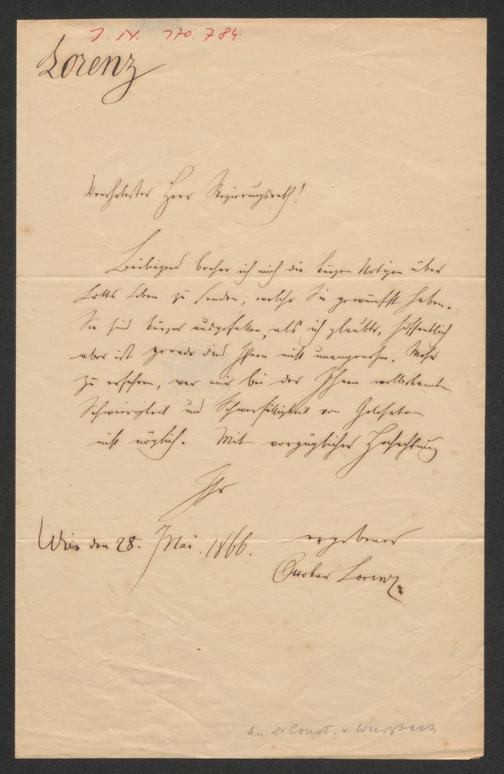 J. N. 170.784
Lorenz
Verehrtester Herr Regierungsrath!
Beiliegend beehre ich mich die kurzen Notizen über
Lotts Leben zu senden, welche Sie gewünscht haben.
Sie sind kürzer ausgefallen, als ich glaubte, hoffentlich
aber ist gerade dies Ihnen nicht unangenehm. Mehr
zu erfahren, war mir bei der Ihnen wohlbekannten
Schwierigkeit und Schwerfälligkeit von Gelehrten
nicht möglich. Mit vorzüglicher Hochachtung
Ihr
Wien den 28. Mai 1866. ergebener
Ottokar Lorenz
An Dr Const. v. Wurzbach